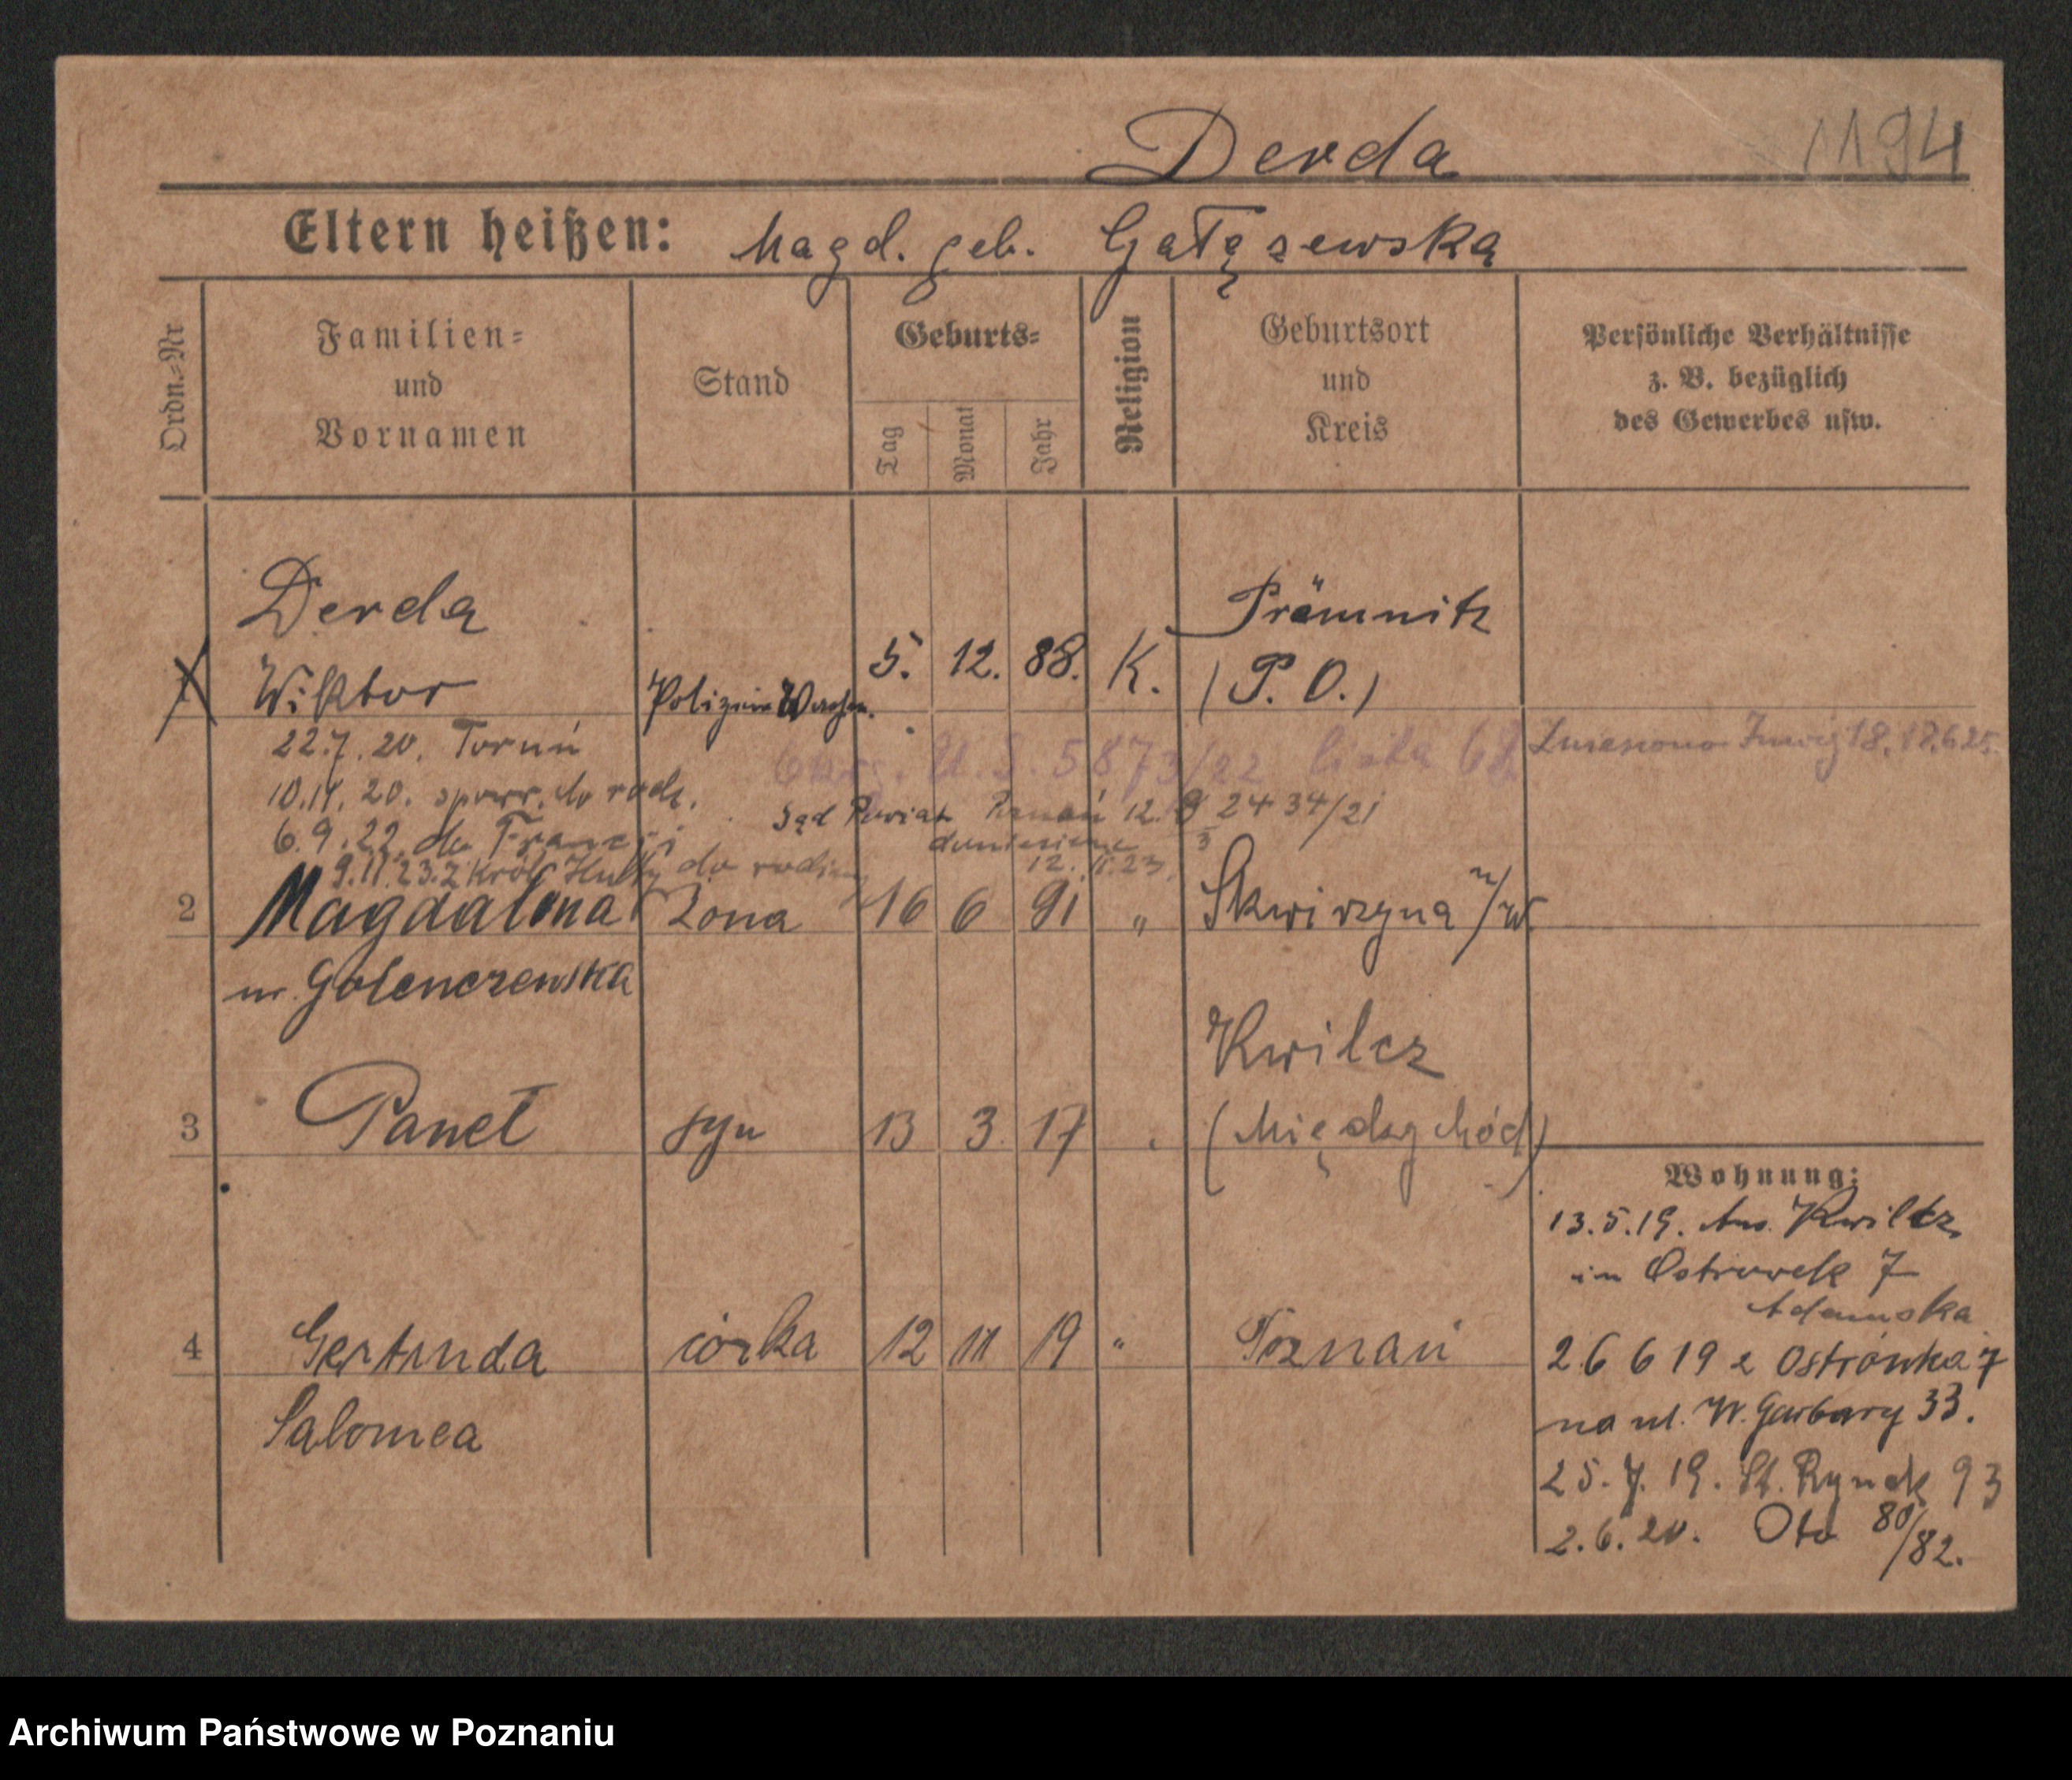 Derda
1194
Eltern heißen: Magd. geb. Gałązewska
Ordn.-Nr
Familien=
und
Vornamen
Stand
Geburts=
Tag
Monat
Jahr
Religion
Geburtsort
und
Kreis
Persönliche Verhältnisse
z. B. bezüglich
des Gewerbes usw.
Derda
Wiktor 5. 12. 88. K. Prämnitz
(P. O.)
22.7.20. Toruń
U. S. 5873/22 lista 68
10.11.20. do rodz.
Sąd Powiat Poznań 12. 24 34/21
6.9.22. do Francji
doniesienie
9.11.23. z Król Huty do rodziny
2 Magdalena żona 16 6 91 " Skwirzyna n/W.
ur. Golenczewska
3 Paweł syn 13 3 17 Kwilcz
(Międzychód)
Wohnung:
13.5.19. Kwilcz
in Ostrowek 7
Adamska
4 Gertruda córka 12 11 19 " Poznań
Salomea
26 6 19 z Ostrówka 7
na ul. W. Garbary 33.
25.7.19. St. Rynek 93
2.6.20. 80/82.
Archiwum Państwowe w Poznaniu